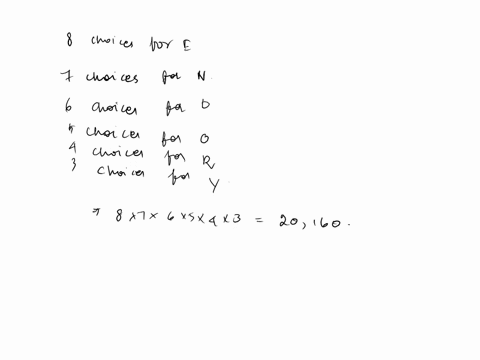 8 choices for E
7 choices for N.
6 choices for D
5 choices for O
4 choices for R
3 choices for Y.
⇒ 8 × 7 × 6 × 5 × 4 × 3 = 20,160.